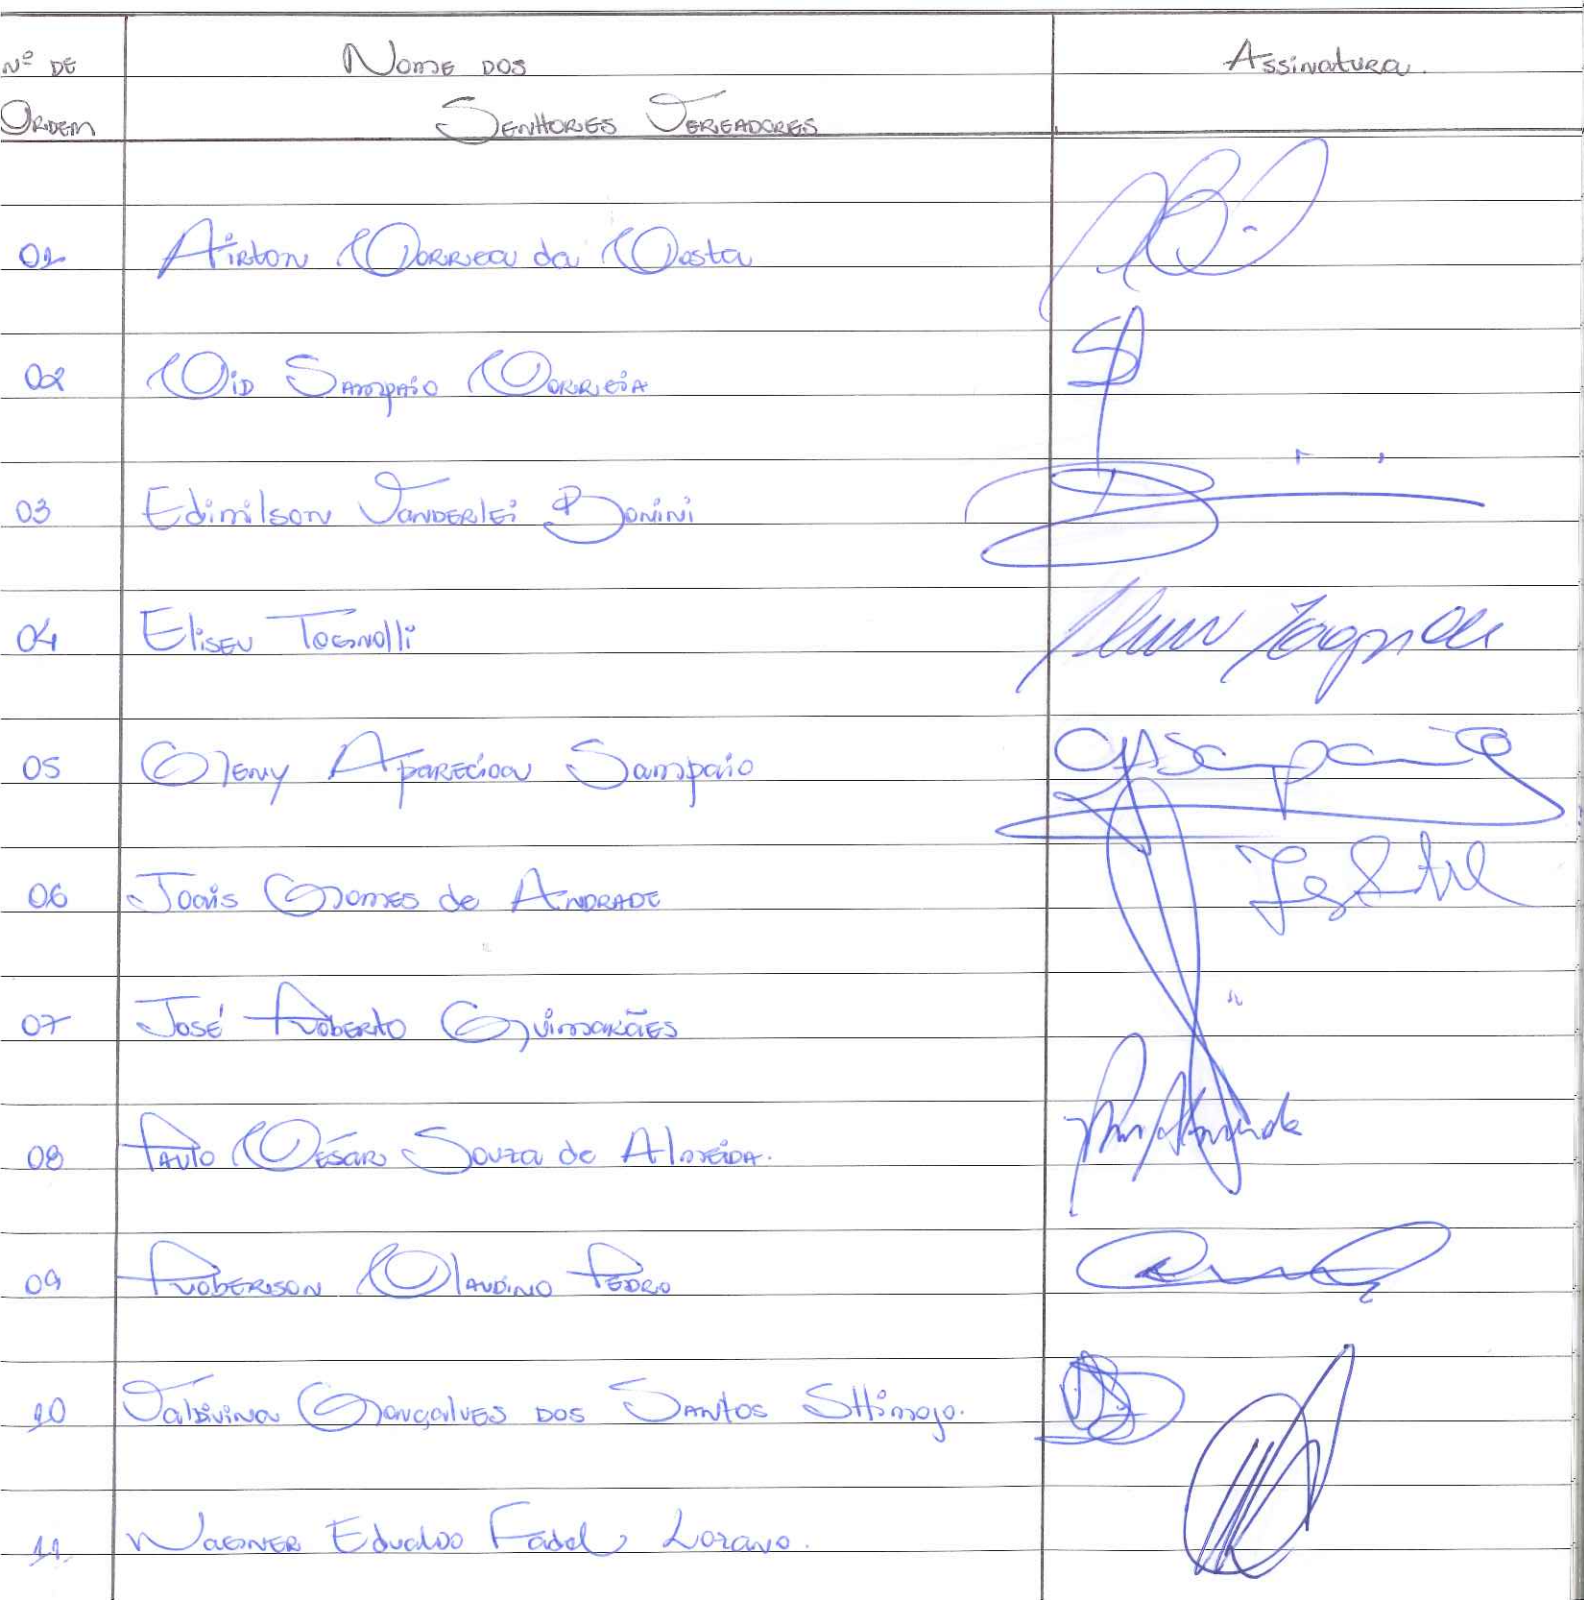 Nº DE Nome dos Assinatura.
Ordem Senhores Vereadores
01 Airton Correa da Costa
02 Cid Sampaio Correia
03 Edimilson Vanderlei Bonini
04 Eliseu Tognolli
05 Gleny Aparecida Sampaio
06 Joais Gomes de Andrade
07 José Roberto Guimarães
08 Paulo César Souza de Almeida.
09 Roberson Claudino Pedro
10 Valdivina Gonçalves dos Santos Shimojo.
11 Wagner Edualdo Fadel Lozano.